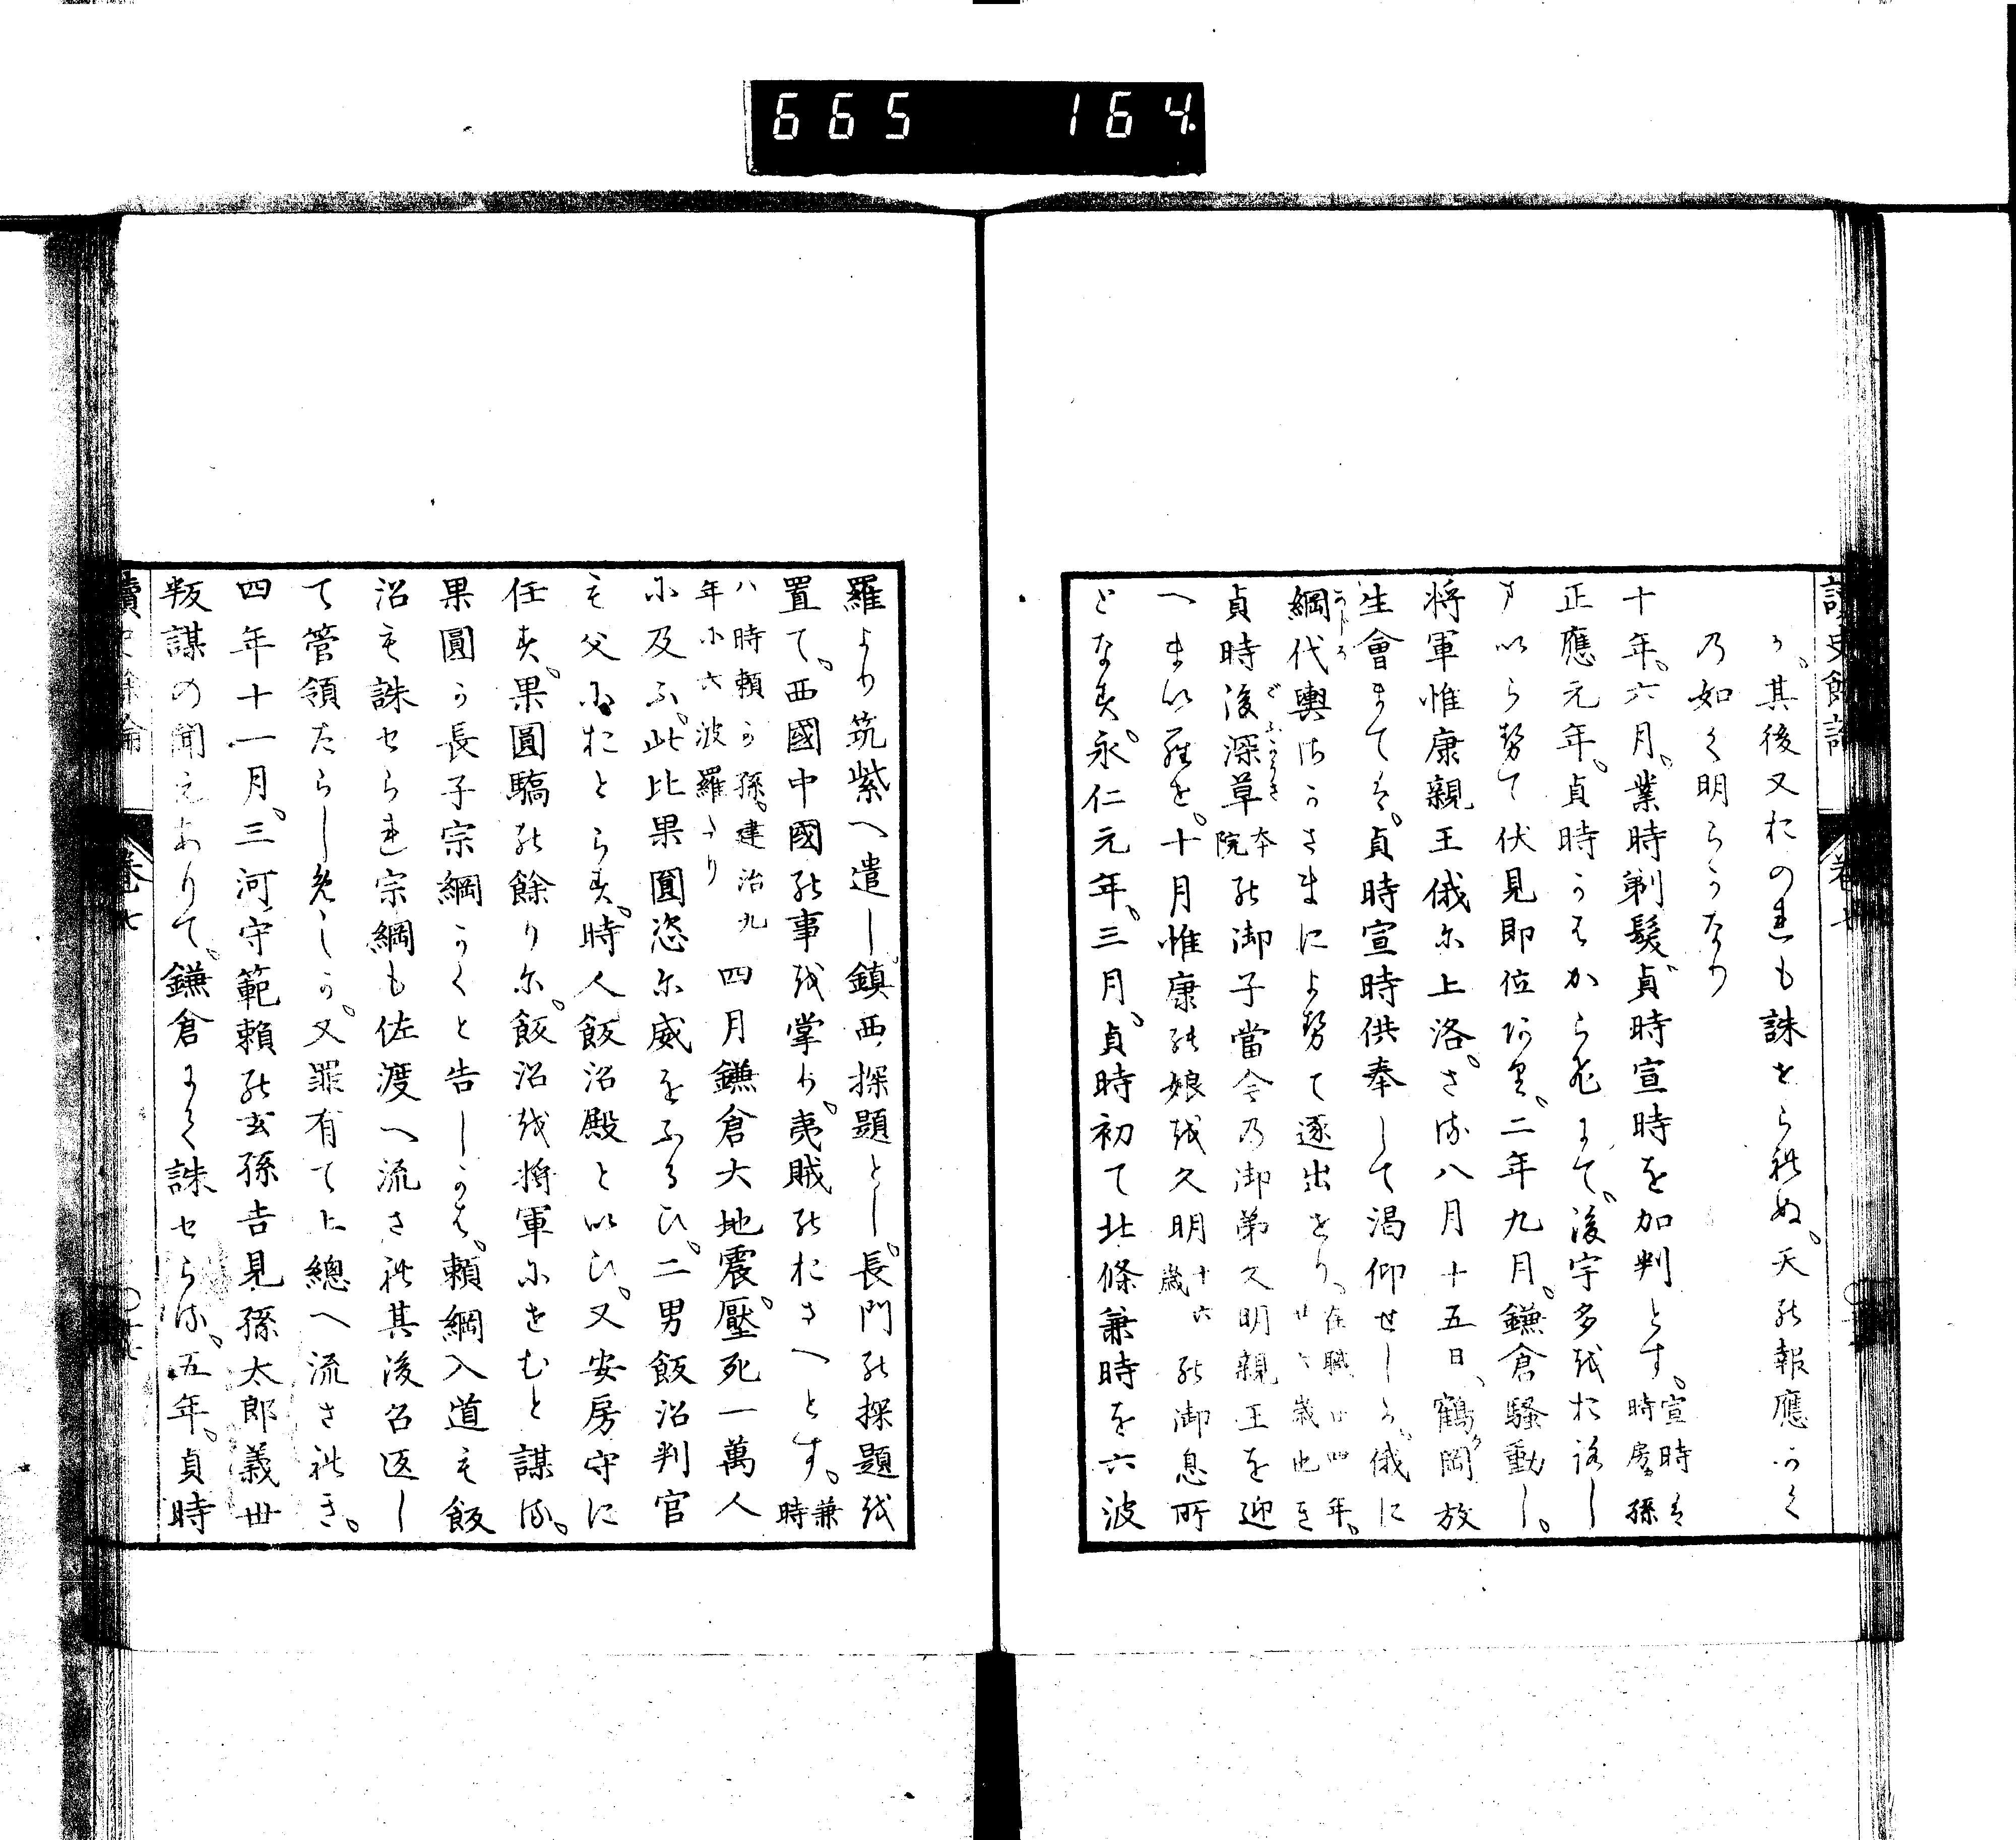 665 164
讀史餘論 卷七
か、其後又おのれも誅せられぬ、天の報應かく
の如く明らかなり
十年、六月、業時剃髮、貞時宣時を加判とす、宣時は時房孫
正應元年、貞時うけからひにて、後宇多をおろし
まいらせて伏見即位あり、二年九月、鎌倉騒動し、
將軍惟康親王俄に上洛、さる八月十五日、鶴岡放
生會まては、貞時宣時供奉して渇仰せしか、俄に
網代輿さかさまによせて逐出せり、在職廿四年、廿六歳也き
貞時後深草本院の御子當今の御弟久明親王を迎
へまいらせ、十月惟康の娘を久明十六歳の御息所
となす、永仁元年、三月、貞時初て北條兼時を六波
羅より筑紫へ遣し、鎮西探題とし、長門の探題を
置て、西國中國の事を掌り、夷賊のおさへとす、兼時
ハ時頼か孫、建治九年に六波羅たり 四月鎌倉大地震、壓死一萬人
に及ふ、此比果圓恣に威をふるひ、二男飯沼判官
も父におとらす、時人飯沼殿といひ、又安房守に
任す、果圓驕の餘りに、飯沼を將軍にせむと謀る、
果圓か長子宗綱かくと告しかは、頼綱入道も飯
沼も誅せられ宗綱も佐渡へ流され其後召返し
て管領たらしめしか、又罪有て上總へ流されき、
四年十一月、三河守範頼の玄孫吉見孫太郎義世
叛謀の聞えありて、鎌倉にて誅せらる、五年、貞時
讀史餘論 卷七